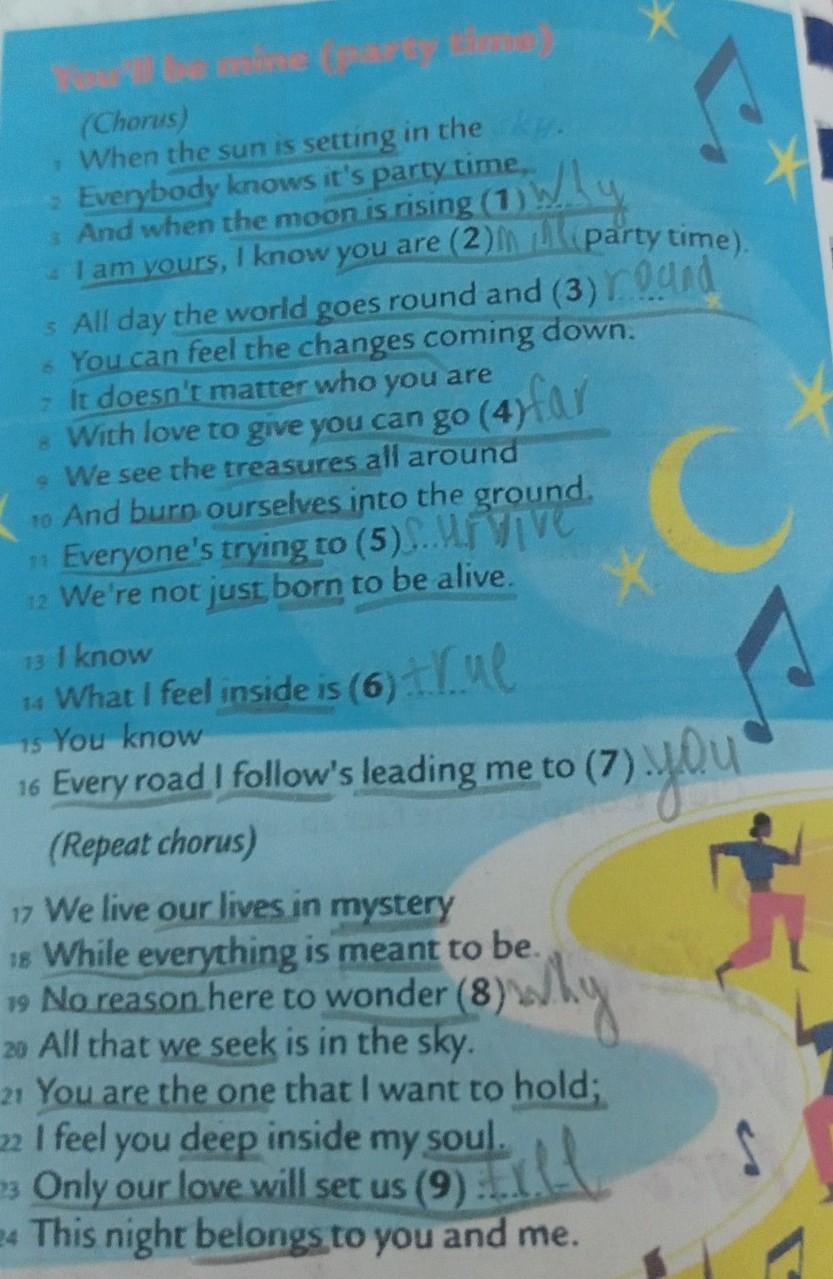 You'll be mine (party time)
(Chorus)
1 When the sun is setting in the sky.
2 Everybody knows it's party time,
3 And when the moon is rising (1) why
4 I am yours, I know you are (2) (party time).
5 All day the world goes round and (3) round
6 You can feel the changes coming down.
7 It doesn't matter who you are
8 With love to give you can go (4) far
9 We see the treasures all around
10 And burn ourselves into the ground.
11 Everyone's trying to (5) survive
12 We're not just born to be alive.
13 I know
14 What I feel inside is (6) true
15 You know
16 Every road I follow's leading me to (7) you
(Repeat chorus)
17 We live our lives in mystery
18 While everything is meant to be.
19 No reason here to wonder (8) why
20 All that we seek is in the sky.
21 You are the one that I want to hold;
22 I feel you deep inside my soul.
23 Only our love will set us (9)
24 This night belongs to you and me.